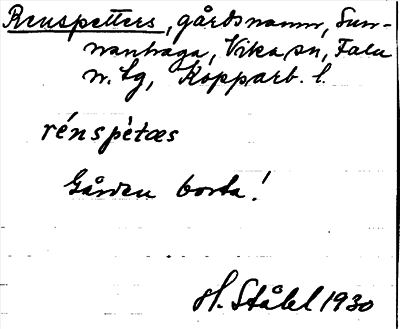 Renspetters, gårdsnamn, Sun-
nanhaga, Vika sn, Falu
n. lg, Kopparb. l.
rénspètæs
Gården borta!
H. Ståhl 1930